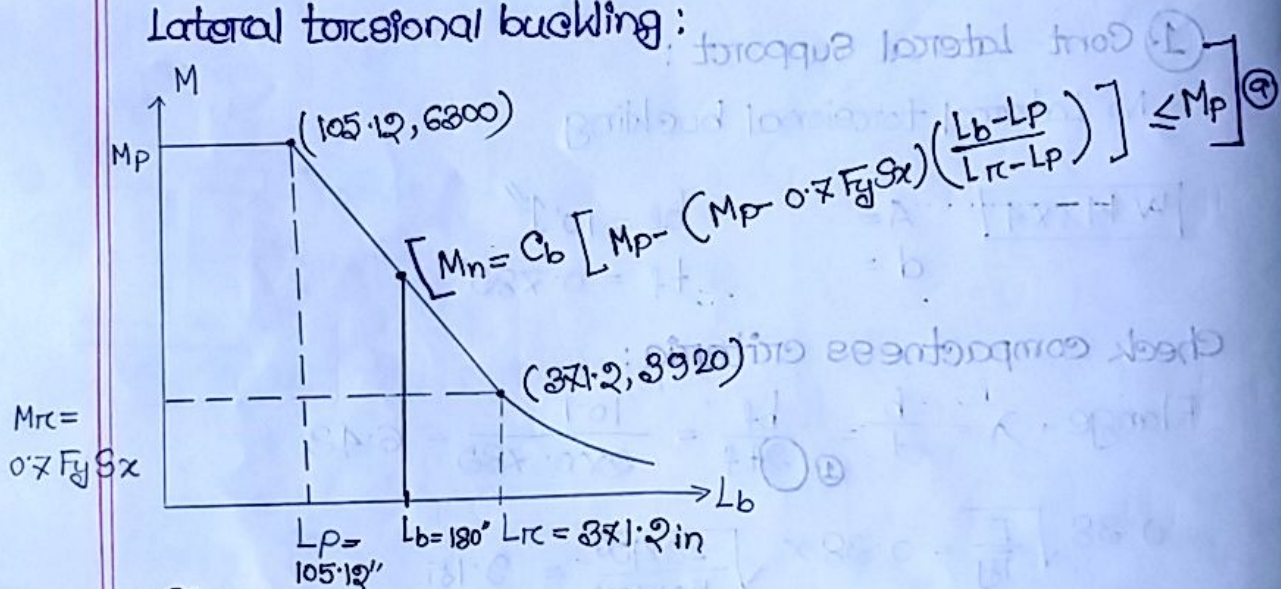 Lateral torsional buckling :
M
(105.12, 6300)
Mp
[Mn = Cb [Mp - (Mp - 0.7 FySx) (Lb-Lp / Lr-Lp)] ≤ Mp]
(371.2, 3920)
Mr =
0.7 Fy Sx
Lb
Lp = Lb = 180" Lr = 371.2 in
105.12"